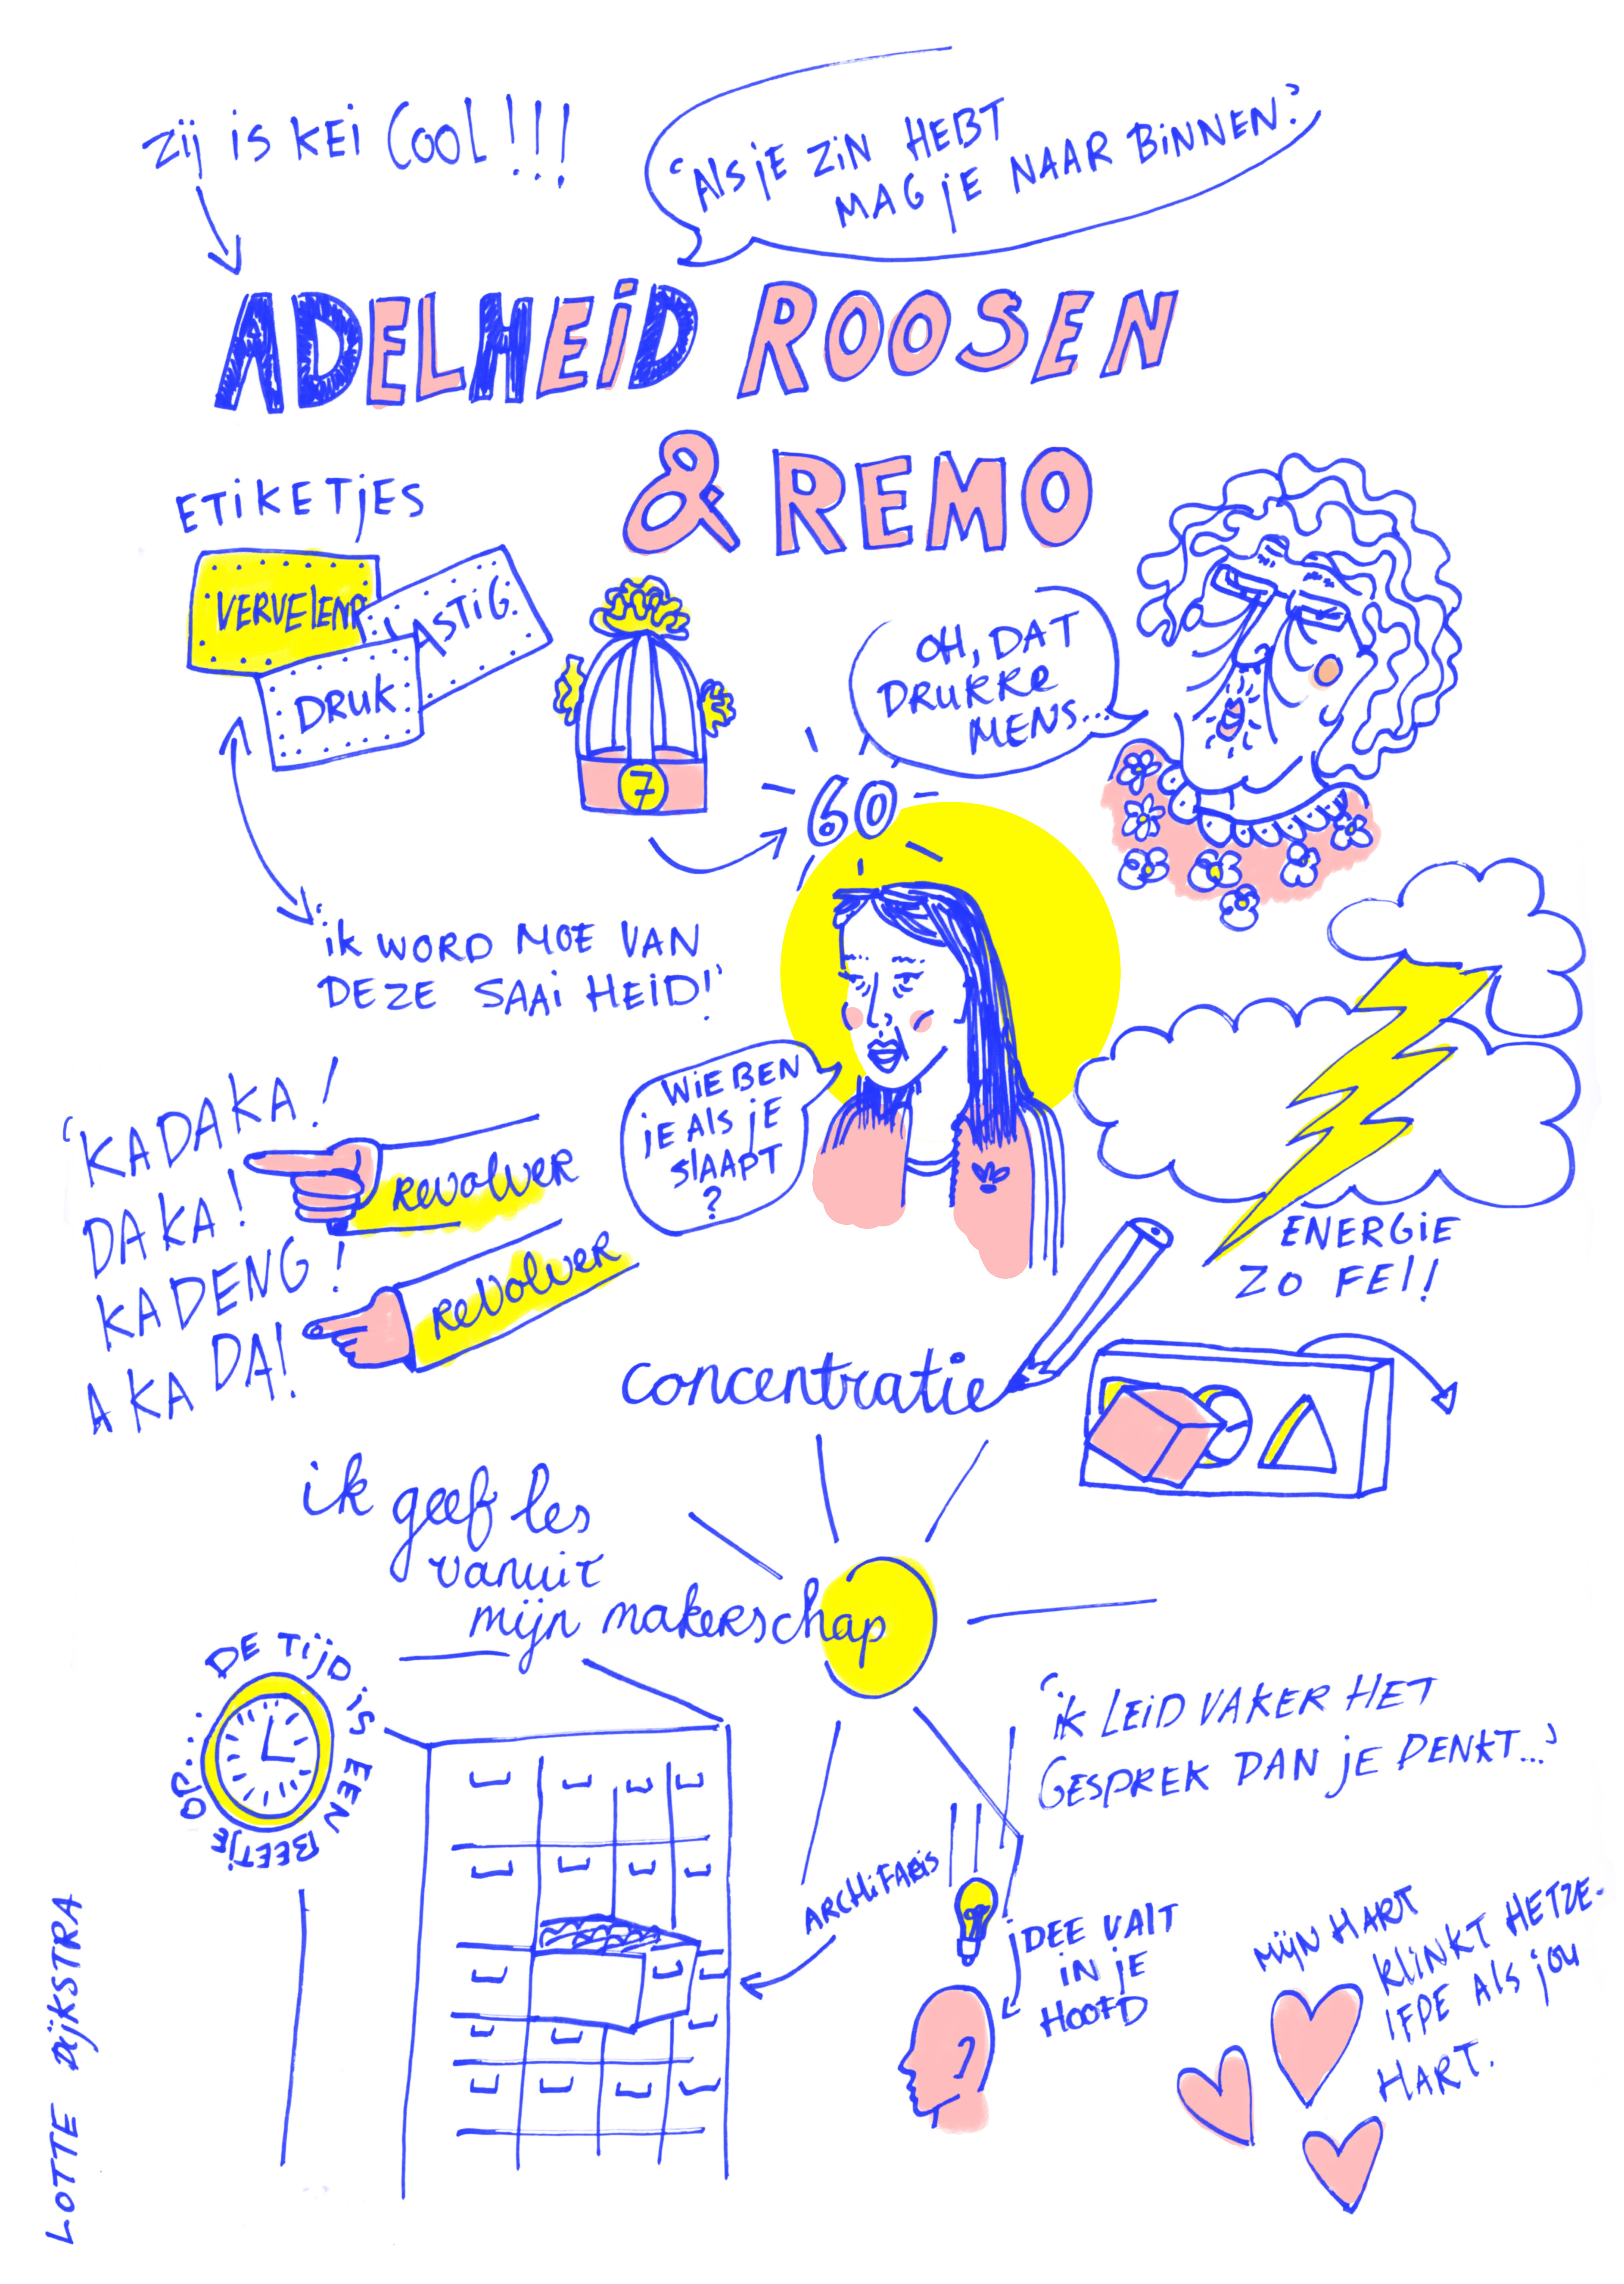 Zij is KEI COOL!!!
'Als je ZIN HEBT
MAG je NAAR BINNEN.'
ADELHEID ROOSEN
& REMO
ETIKETJES
VERVELEND
LASTIG.
DRUK
7
60
OH, DAT
DRUKKE
MENS...
'ik WORD MOE VAN
DEZE SAAIHEID!'
WIE BEN
je ALS je
SlAAPT
?
'KADAKA!
DAKA!
KADENG!
AKA DA!
REVOLVER
REVOLVER
ENERGIE
ZO FEI!
concentratie
ik geef les
vanuit
mijn makerschap
DE TIJD IS EEN BEETJE OP....
'ik LEID VAKER HET
GESPREK DAN je DENKT...'
IDEE VALT
IN JE
HOOFD
MIJN HART
KLINKT HETZE-
LFDE ALS jou
HART.
LOTTE DIJKSTRA